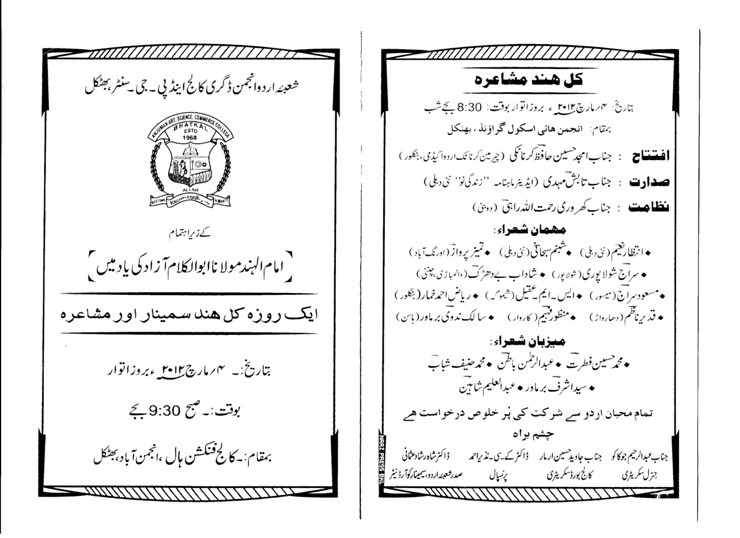 کل ہند مشاعرہ
تاریخ: ۴؍مارچ ۲۰۱۲ء بروز اتوار بوقت: 8:30 بجے شب
بمقام: انجمن ھائی اسکول گراؤنڈ، بھٹکل
افتتاح : جناب امجد حسین حافظ کرناٹکی (چیرمین کرناٹک اردو اکیڈمی، بنگلور)
صدارت : جناب تابش مہدی (ایڈیٹر ماہنامہ "زندگی نو" نئی دہلی)
نظامت : جناب کھروری رحمت اللہ راہی (دوبئی)
مھمان شعراء:
• انتظار نعیم (نئی دہلی) • شبنم سبحانی (نئی دہلی) • تمیز پرواز (اورنگ آباد)
• سراج شولاپوری (شولاپور) • شاداب بے دھڑک (وانمباڑی چنئی)
• مسعود سراج (میسور) • ایس۔ایم۔عقیل (شیموگہ) • ریاض احمد خمار (بنگلور)
• قدیر ناظم (دھارواڑ) • منظور فہیم (کاروار) • سالک ندوی برماور (یاسن)
میزبان شعراء:
• محمد حسین فطرت • عبدالرحمٰن باطن • محمد حنیف شباب
• سید اشرف برماور • عبدالعلیم شاہین
تمام محبان اردو سے شرکت کی پُر خلوص درخواست ھے
چشم براہ
جناب عبدالرحیم جوکاکو جناب جاوید حسین ارمار ڈاکٹر کے۔سی۔نذیر احمد ڈاکٹر شاہ رشاد عثمانی
جنرل سکریٹری کالج بورڈ سکریٹری پرنسپال صدر شعبۂ اردو، سیمینار کوآرڈنیٹر
شعبۂ اردو انجمن ڈگری کالج اینڈ پی۔جی۔سنٹر، بھٹکل
ANJUMAN ART, SCIENCE, COMMERCE COLLEGE
BHATKAL
ESTD
1968
ALLAH
کے زیر اہتمام
امام الہند مولانا ابوالکلام آزاد کی یاد میں
ایک روزہ کل ھند سمینار اور مشاعرہ
بتاریخ:۔ ۴؍مارچ ۲۰۱۲ء بروز اتوار
بوقت:۔ صبح 9:30 بجے
بمقام:۔ کالج فنکشن ہال، انجمن آباد، بھٹکل